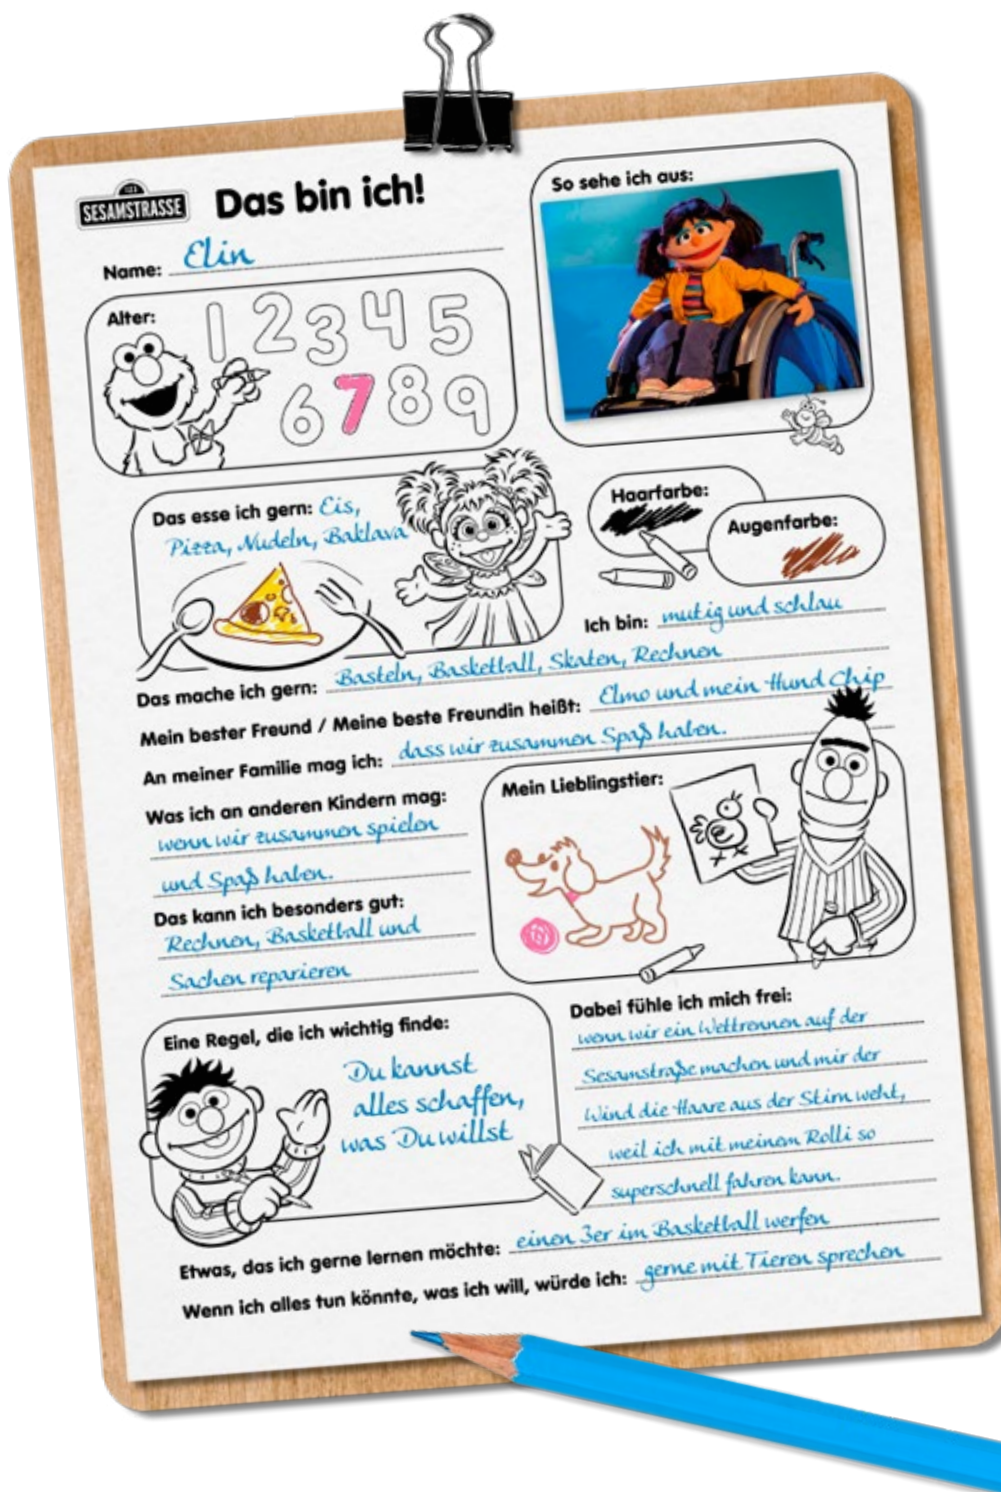 123
SESAMSTRASSE
Das bin ich!
Name: Elin
So sehe ich aus:
Alter:
1 2 3 4 5
6 7 8 9
Das esse ich gern: Eis,
Pizza, Nudeln, Baklava
Haarfarbe:
Augenfarbe:
Ich bin: mutig und schlau
Das mache ich gern: Basteln, Basketball, Skaten, Rechnen
Mein bester Freund / Meine beste Freundin heißt: Elmo und mein Hund Chip
An meiner Familie mag ich: dass wir zusammen Spaß haben.
Was ich an anderen Kindern mag:
wenn wir zusammen spielen
und Spaß haben.
Das kann ich besonders gut:
Rechnen, Basketball und
Sachen reparieren
Mein Lieblingstier:
Eine Regel, die ich wichtig finde:
Du kannst
alles schaffen,
was Du willst
Dabei fühle ich mich frei:
wenn wir ein Wettrennen auf der
Sesamstraße machen und mir der
Wind die Haare aus der Stirn weht,
weil ich mit meinem Rolli so
superschnell fahren kann.
Etwas, das ich gerne lernen möchte: einen 3er im Basketball werfen
Wenn ich alles tun könnte, was ich will, würde ich: gerne mit Tieren sprechen